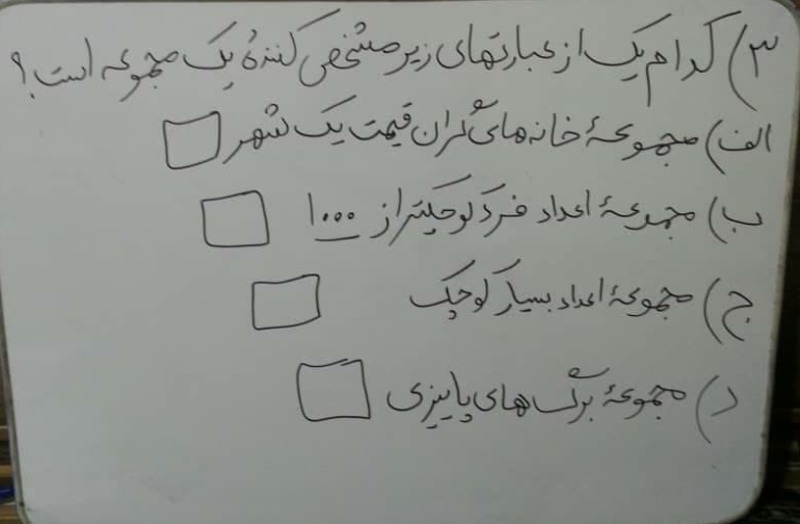 ۳) کدام یک از عبارتهای زیر مشخص کنندهٔ یک مجموعه است؟
الف) مجموعهٔ خانه های گران قیمت یک شهر
ب) مجموعهٔ اعداد فرد کوچکتر از ۱۰۰۰
ج) مجموعهٔ اعداد بسیار کوچک
د) مجموعهٔ برگ های پاییزی